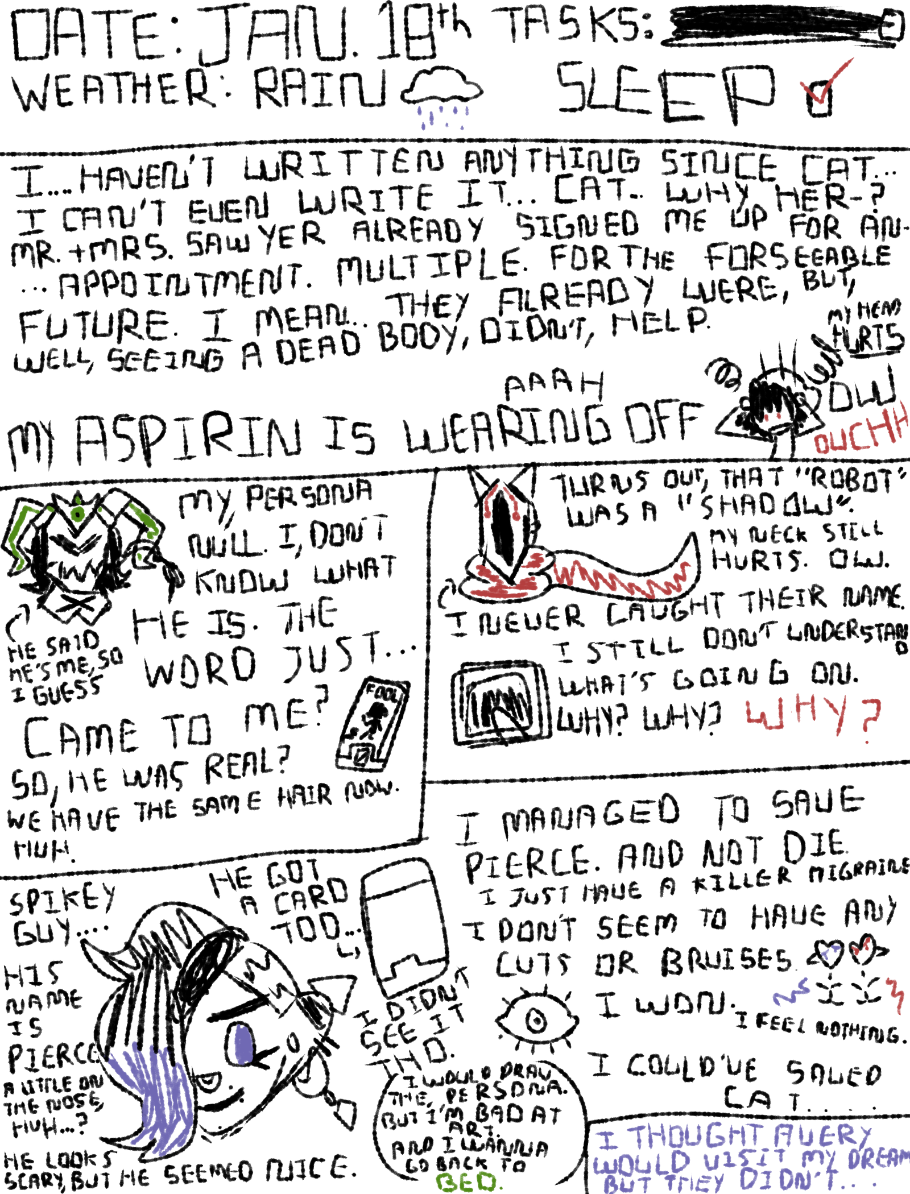 DATE: JAN. 18th TASKS:
WEATHER: RAIN SLEEP
I...HAVEN'T WRITTEN ANYTHING SINCE CAT...
I CAN'T EVEN WRITE IT... CAT.. WHY HER-?
MR.+MRS. SAWYER ALREADY SIGNED ME UP FOR AN-
...APPOINTMENT. MULTIPLE. FOR THE FORSEEABLE
FUTURE. I MEAN.. THEY ALREADY WERE, BUT,
WELL, SEEING A DEAD BODY, DIDN'T, HELP.
MY HEAD
HURTS
AAAH
OW
OUCHH
MY ASPIRIN IS WEARING OFF
MY, PERSONA
NULL. I, DON'T
KNOW WHAT
HE IS. THE
WORD JUST...
HE SAID
HE'S ME, SO
I GUESS
CAME TO ME?
FOOL
0
SO, HE WAS REAL?
WE HAVE THE SAME HAIR NOW.
HUH.
TURNS OUT, THAT "ROBOT"
WAS A "SHADOW".
MY NECK STILL
HURTS. OW.
I NEVER CAUGHT THEIR NAME.
I STILL DON'T UNDERSTAND
WHAT'S GOING ON.
WHY? WHY? WHY?
SPIKEY
GUY....
HE GOT
A CARD
TOO...
HIS
NAME
IS
PIERCE
A LITTLE ON
THE NOSE,
HUH...?
HE LOOKS
SCARY, BUT HE SEEMED NICE.
I DIDN'T
SEE IT
THO.
I WOULD DRAW
THE, PERSONA.
BUT I'M BAD AT
ART.
AND I WANNA
GO BACK TO
BED.
I MANAGED TO SAVE
PIERCE. AND NOT DIE.
I JUST HAVE A KILLER MIGRAINE
I DON'T SEEM TO HAVE ANY
CUTS OR BRUISES
I WON.
I FEEL NOTHING.
I COULD'VE SAVED
CAT....
I THOUGHT AVERY
WOULD VISIT MY DREAM
BUT THEY DIDN'T...